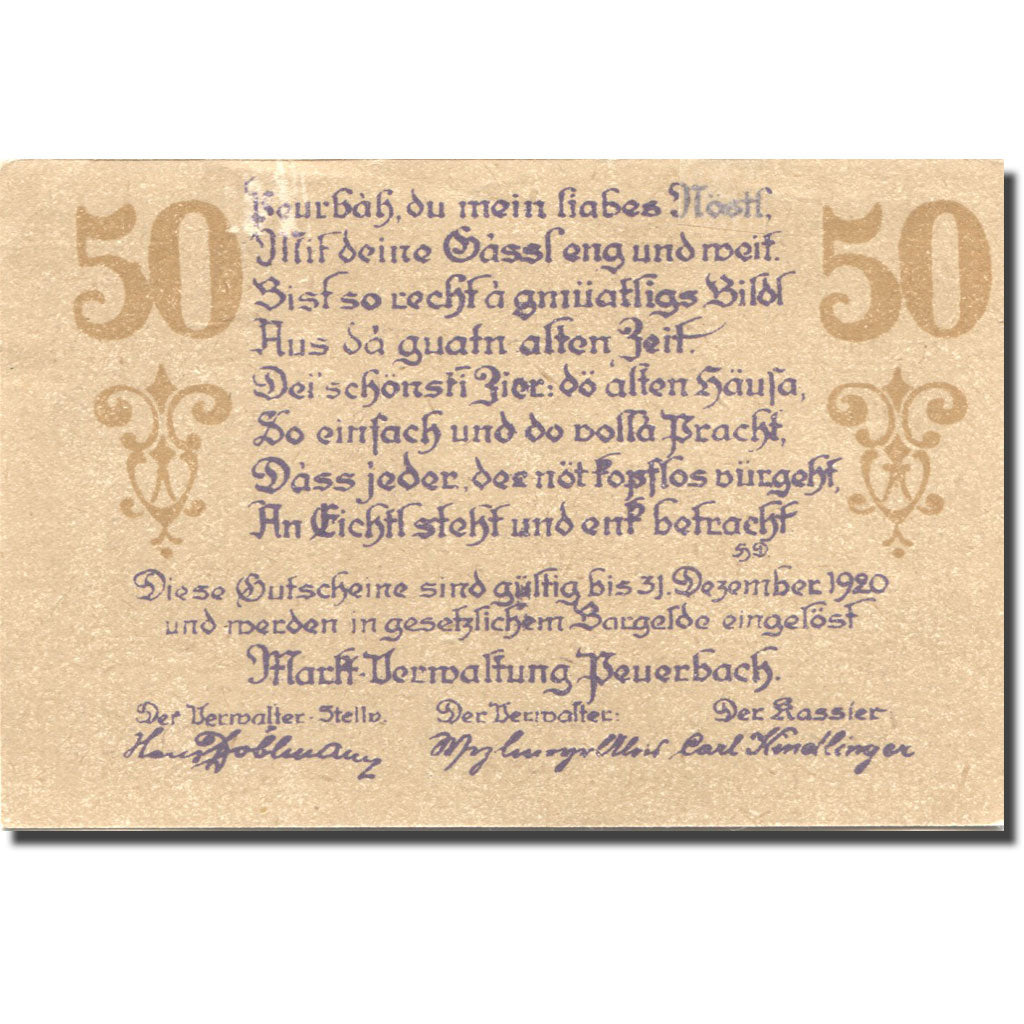 50 50
Peurbàh, du mein liabes Nöstl,
Mit deine Gàssl eng und weit.
Bist so recht à gmüatligs Bildl
Aus dà guatn alten Zeit.
Dei schönsti Zier: dö alten Häusa,
So einfach und do vollà Pracht,
Dàss jeder, der nöt kopflos vürgeht,
An Eichtl steht und enk betracht
HD
Diese Gutscheine sind gültig bis 31. Dezember 1920
und werden in gesetzlichem Bargelde eingelöst
Markt-Verwaltung Peuerbach.
Der Verwalter-Stellv. Der Verwalter: Der Kassier
Hans Carl Kindlinger